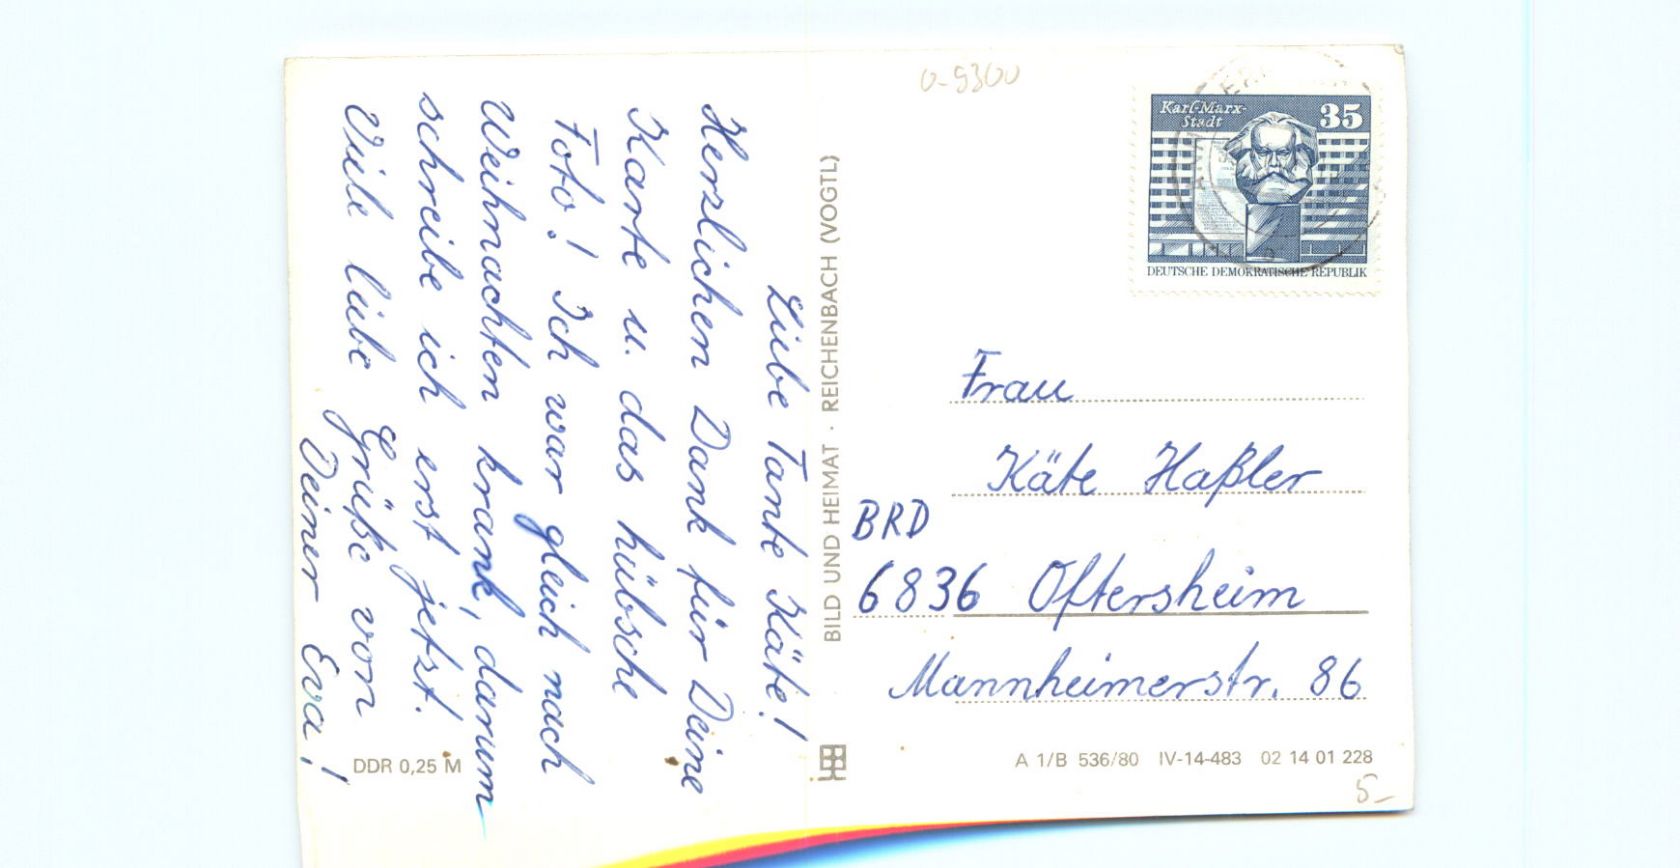 Liebe Tante Käte!
Herzlichen Dank für Deine
Karte u. das hübsche
Foto! Ich war gleich nach
Weihnachten krank, darum
schreibe ich erst jetzt.
Viele liebe Grüße von
Deiner Eva!
DDR 0,25 M
BILD UND HEIMAT · REICHENBACH (VOGTL)
0-9300
Karl-Marx-
Stadt
35
DEUTSCHE DEMOKRATISCHE REPUBLIK
Frau
Käte Haßler
BRD
6836 Oftersheim
Mannheimerstr. 86
A 1/B 536/80 IV-14-483 02 14 01 228
5-